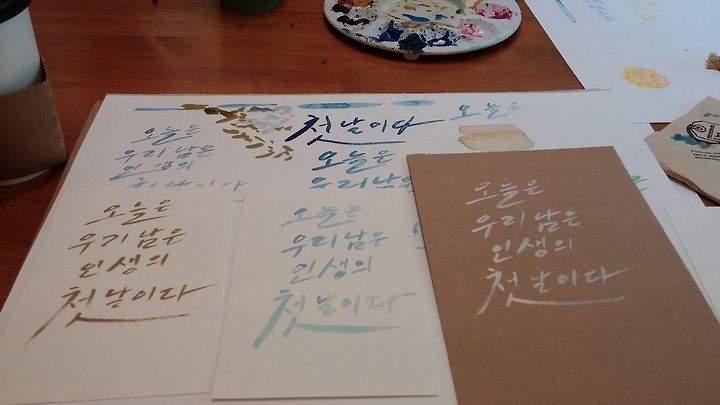 오늘은
우리 남은
인생의
첫날이다
오늘은
우리 남은
오늘은
오늘은
우리 남은
인생의
첫날이다
오늘은
우리 남은
인생의
첫날이다
오늘은
우리 남은
인생의
첫날이다